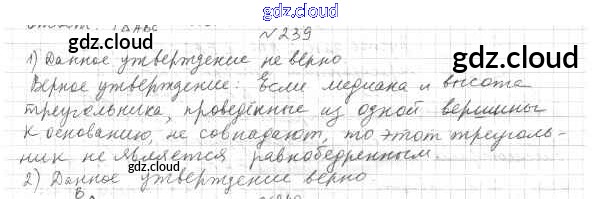 gdz.cloud
Ответ: P△ABC
№239
1) Данное утверждение не верно
Верное утверждение: Если медиана и высота
треугольника, проведённые из одной вершины
к основанию, не совпадают, то этот треуголь-
ник не является равнобедренным.
2) Данное утверждение верно.
gdz.cloud
gdz.cloud
gdz.cloud